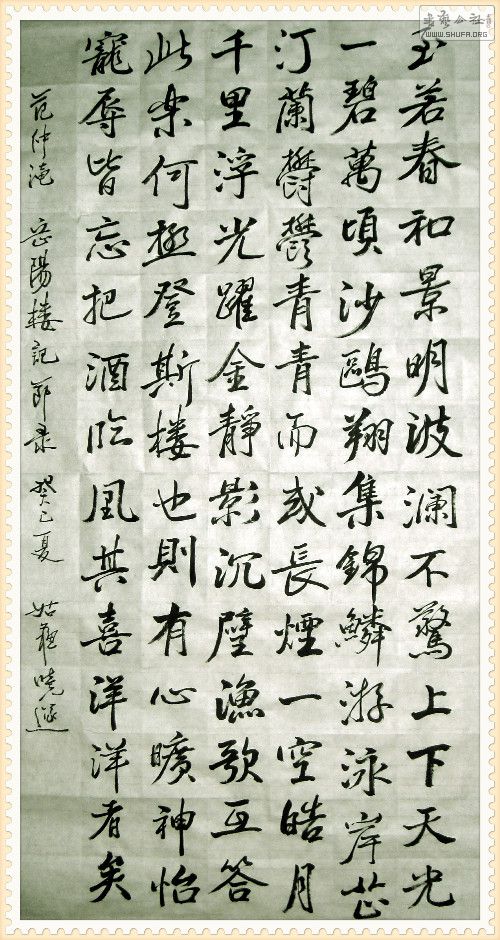 至若春和景明波澜不驚上下天光
一碧萬頃沙鷗翔集錦鱗游泳岸芷
汀蘭鬱鬱青青而或長煙一空皓月
千里浮光躍金靜影沉璧漁歌互答
此楽何極登斯楼也則有心曠神怡
寵辱皆忘把酒临風其喜洋洋者矣
范仲淹 岳陽楼記节录 癸巳夏 姑蘇曉
书艺公社
WWW.SHUFA.ORG